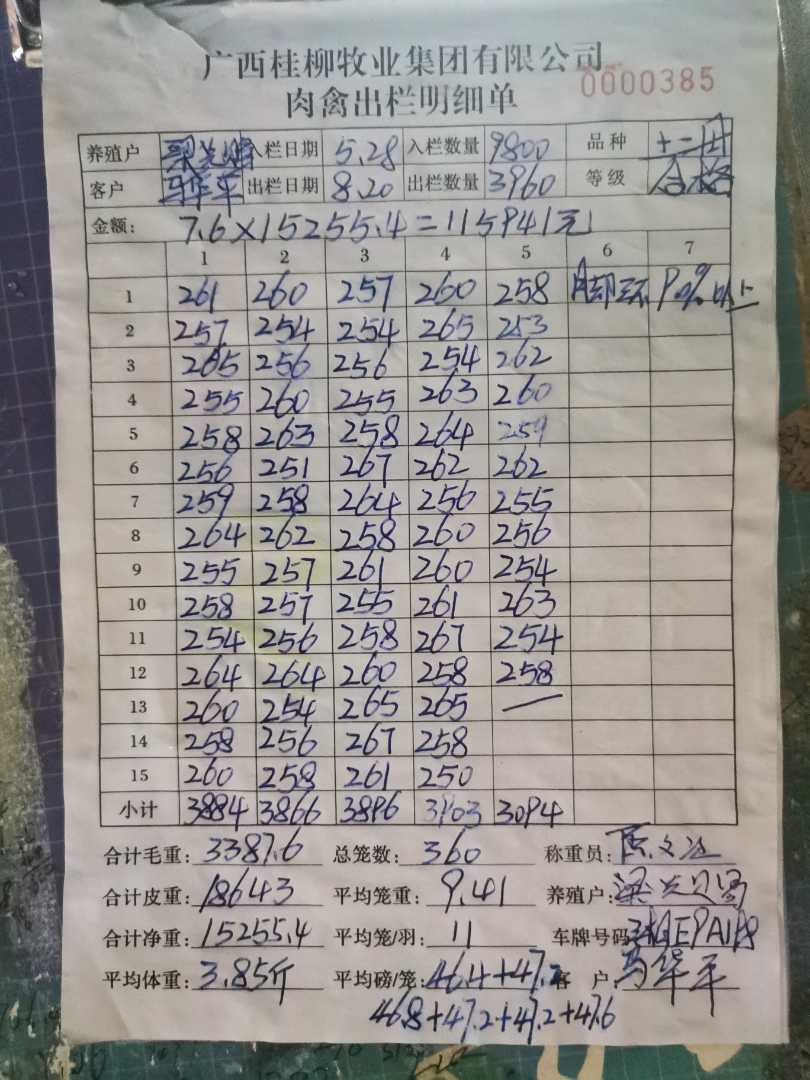 广西桂柳牧业集团有限公司
0000385
肉禽出栏明细单
养殖户 入栏日期 5.28 入栏数量 9800 品种
客户 马华平 出栏日期 8.20 出栏数量 3960 等级 合格
金额: 7.6×15255.4=115941元
1 2 3 4 5 6 7
1 261 260 257 260 258 脚环 90%以上
2 257 254 254 265 253
3 265 256 256 254 262
4 255 260 255 263 260
5 258 263 258 264 259
6 256 251 267 262 262
7 259 258 264 256 255
8 264 262 258 260 256
9 255 257 261 260 254
10 258 257 255 261 263
11 254 256 258 267 254
12 264 264 260 258 258
13 260 254 265 265 —
14 258 256 267 258
15 260 258 261 250
小计 3884 3866 3896 3903 3094
合计毛重: 3387.6 总笼数: 360 称重员:
合计皮重: 18643 平均笼重: 9.41 养殖户:
合计净重: 15255.4 平均笼/羽: 11 车牌号码
平均体重: 3.85斤 平均磅/笼: 46.4+47.2 客户: 马华平
46.8+47.2+47.2+47.6